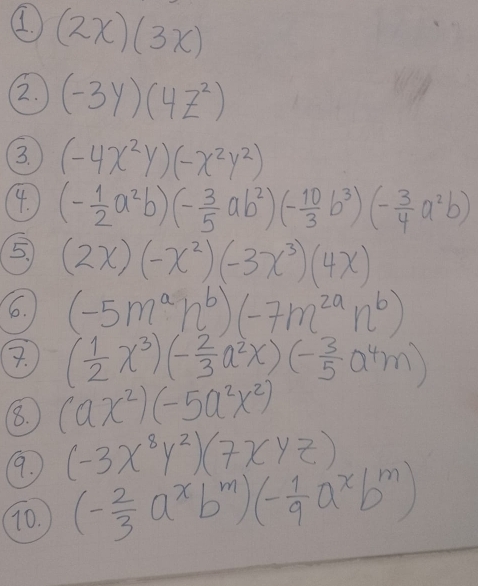 1. (2x)(3x)
2. (-3y)(4z²)
3. (-4x²y)(-x²y²)
4. (-1/2 a²b)(-3/5 ab²)(-10/3 b³)(-3/4 a²b)
5. (2x)(-x²)(-3x³)(4x)
6. (-5mᵃnᵇ)(-7m²ᵃnᵇ)
7. (1/2 x³)(-2/3 a²x)(-3/5 a⁴m)
8. (ax²)(-5a²x²)
9. (-3x⁸y²)(7xyz)
10. (-2/3 aˣbᵐ)(-1/9 aˣbᵐ)